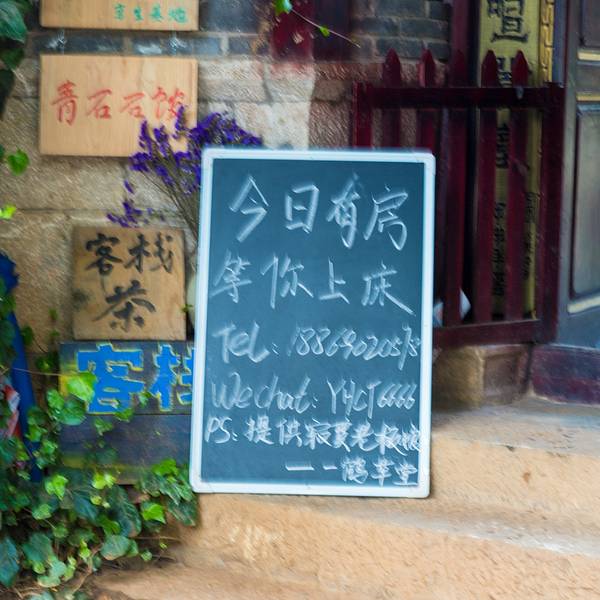 青石石馓
客栈
茶
客栈
今日有房
等你上床
TeL: 18869020575
Wechat: YHCT6666
PS: 提供寂寞老板娘
——鹤草堂